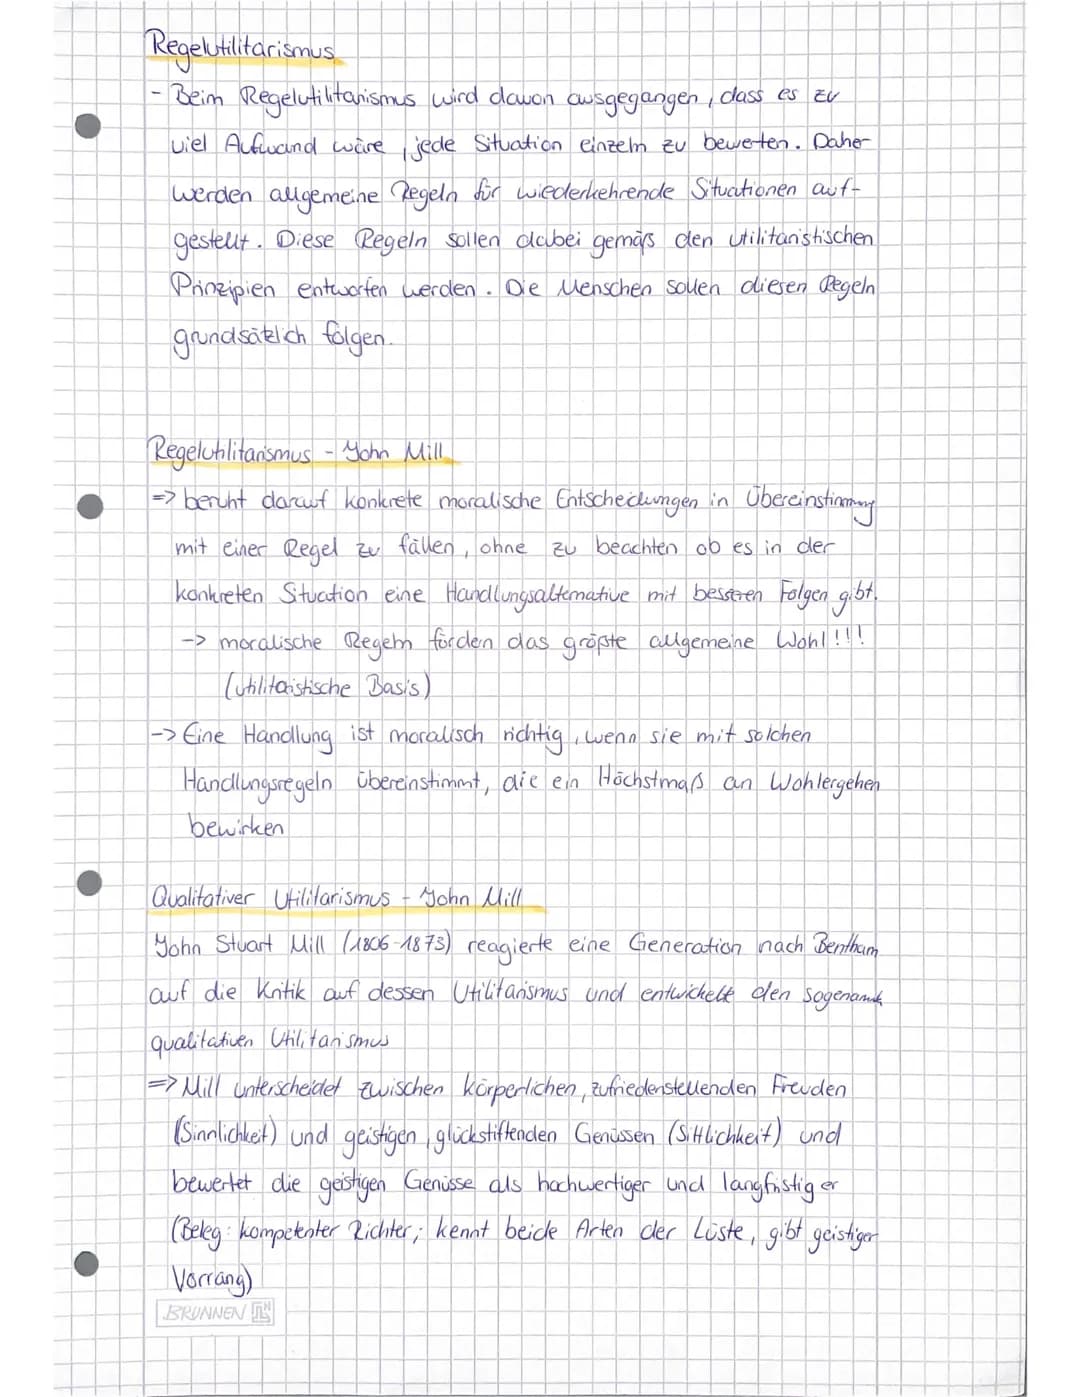 Regelutilitarismus
- Beim Regelutilitarismus wird davon ausgegangen, dass es zu
viel Aufwand wäre, jede Situation einzeln zu bewerten. Daher
werden allgemeine Regeln für wiederkehrende Situationen auf-
gestellt. Diese Regeln sollen dabei gemäß den utilitaristischen
Prinzipien entworfen werden. Die Menschen sollen diesen Regeln
grundsätzlich folgen.
Regelutilitarismus - John Mill
=> beruht darauf konkrete moralische Entscheidungen in Übereinstimmung
mit einer Regel zu fällen, ohne zu beachten ob es in der
konkreten Situation eine Handlungsalternative mit besseren Folgen gibt.
-> moralische Regeln fördern das größte allgemeine Wohl!!!
(utilitaristische Basis)
-> Eine Handlung ist moralisch richtig, wenn sie mit solchen
Handlungsregeln übereinstimmt, die ein Höchstmaß an Wohlergehen
bewirken
Qualitativer Utilitarismus - John Mill
John Stuart Mill (1806-1873) reagierte eine Generation nach Bentham
auf die Kritik auf dessen Utilitarismus und entwickelt den sogenannte
qualitativen Utilitarismus
=> Mill unterscheidet zwischen körperlichen, zufriedenstellenden Freuden
(Sinnlichkeit) und geistigen, glückstiftenden Genüssen (Sittlichkeit) und
bewertet die geistigen Genüsse als hochwertiger und langfristiger
(Beleg: kompetenter Richter; kennt beide Arten der Lüste, gibt geistiger
Vorrang)
BRUNNEN